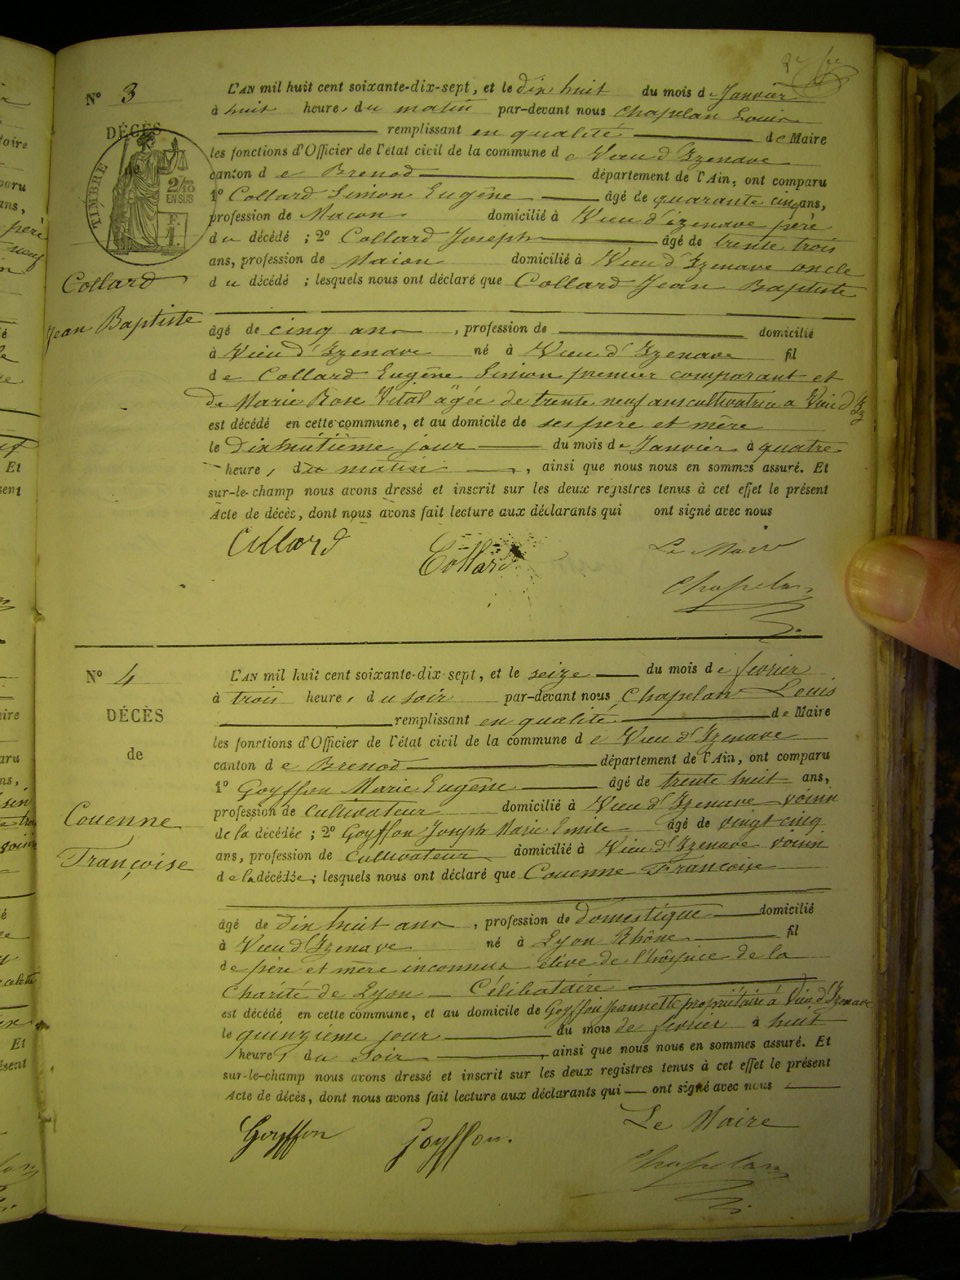 N° 3
DÉCÈS
de
TIMBRE
2/10
EN SUS
F.
1
Collard
Jean Baptiste
L'AN mil huit cent soixante-dix-sept, et le dix huit du mois de Janvier
à huit heure, du matin par-devant nous Chapelan Louis
remplissant en qualité de Maire
les fonctions d'Officier de l'état civil de la commune de Vieu d'Izenave
canton de Brenod département de l'Ain, ont comparu
1° Collard Simon Eugène âgé de quarante cinq ans,
profession de Maçon domicilié à Vieu d'izenave père
du décédé ; 2° Collard Joseph âgé de trente trois
ans, profession de Maçon domicilié à Vieu d'Izenave oncle
du décédé ; lesquels nous ont déclaré que Collard Jean Baptiste
âgé de cinq ans, profession de domicilié
à Vieu d'Izenave né à Vieu d'Izenave fil
de Collard Eugène Simon premier comparant et
De Marie Rose Vital âgée de trente neuf ans cultivatrice a Vieu d'Iz
est décédé en cette commune, et au domicile de ses père et mère
le Dixhuitième jour du mois de Janvier à quatre
heure, du matin, ainsi que nous nous en sommes assuré. Et
sur-le-champ nous avons dressé et inscrit sur les deux registres tenus à cet effet le présent
Acte de décès, dont nous avons fait lecture aux déclarants qui ont signé avec nous
Collard Collard Le Maire
Chapelan
N° 4
DÉCÈS
de
Couenne
Françoise
L'AN mil huit cent soixante-dix-sept, et le seize du mois de fevrier
à trois heure, du soir par-devant nous Chapelan Louis
remplissant en qualité de Maire
les fonctions d'Officier de l'état civil de la commune de Vieu d'Izenave
canton de Brenod département de l'Ain, ont comparu
1° Goyffon Marie Eugène âgé de trente huit ans,
profession de Cultivateur domicilié à Vieu d'Izenave voisin
de la décédée ; 2° Goyffon Joseph Marie Emile âgé de vingt cinq
ans, profession de Cultivateur domicilié à Vieu d'Izenave voisin
de la décédée ; lesquels nous ont déclaré que Couenne Françoise
âgé de dix huit ans, profession de domestique domicilié
à Vieu d'Izenave né à Lyon Rhône fil
de père et mère inconnus élève de l'hospice de la
Charité de Lyon Célibataire
est décédé en cette commune, et au domicile de Goyffon Jeannette propriétaire à Vieu d'Izenave
le quinzième jour du mois de fevrier à huit
heure, du soir, ainsi que nous nous en sommes assuré. Et
sur-le-champ nous avons dressé et inscrit sur les deux registres tenus à cet effet le présent
Acte de décès, dont nous avons fait lecture aux déclarants qui ont signé avec nous
Goyffon Goyffon. Le Maire
Chapelan